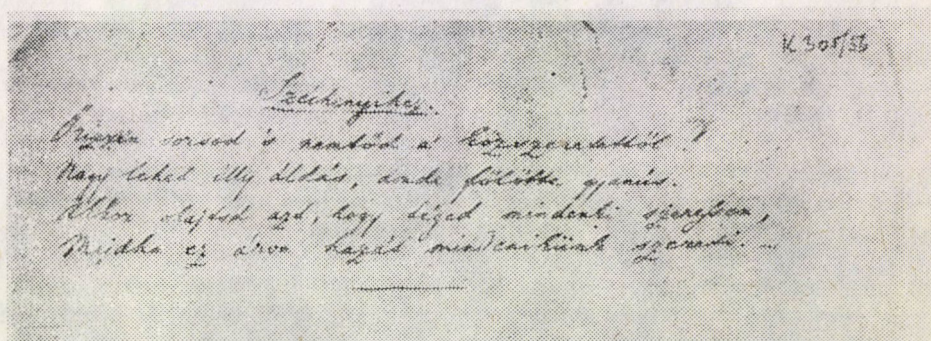 K 305/56
Széchenyihez.
Őrizzen sorsod és nemtőd a' közszeretettől!
Nagy lehet illy áldás, ámde fölötte gyanús.
Akkor ohajtsd azt, hogy téged mindenki szeressen,
Majdha ez árva hazát mindenikünk szereti. —